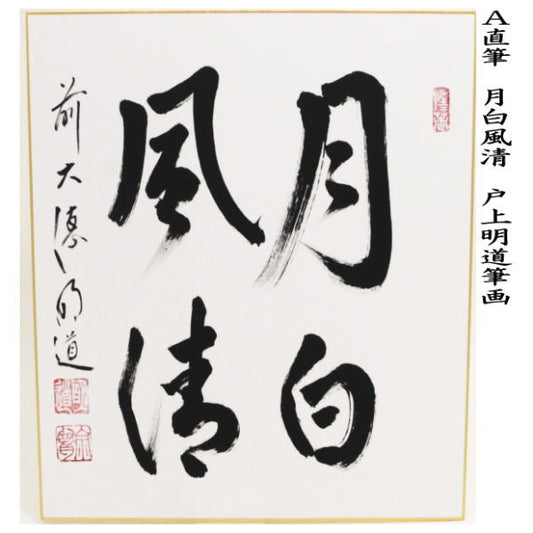 A直筆 月白風清 戸上明道筆画
月白
風清
前大徳明道